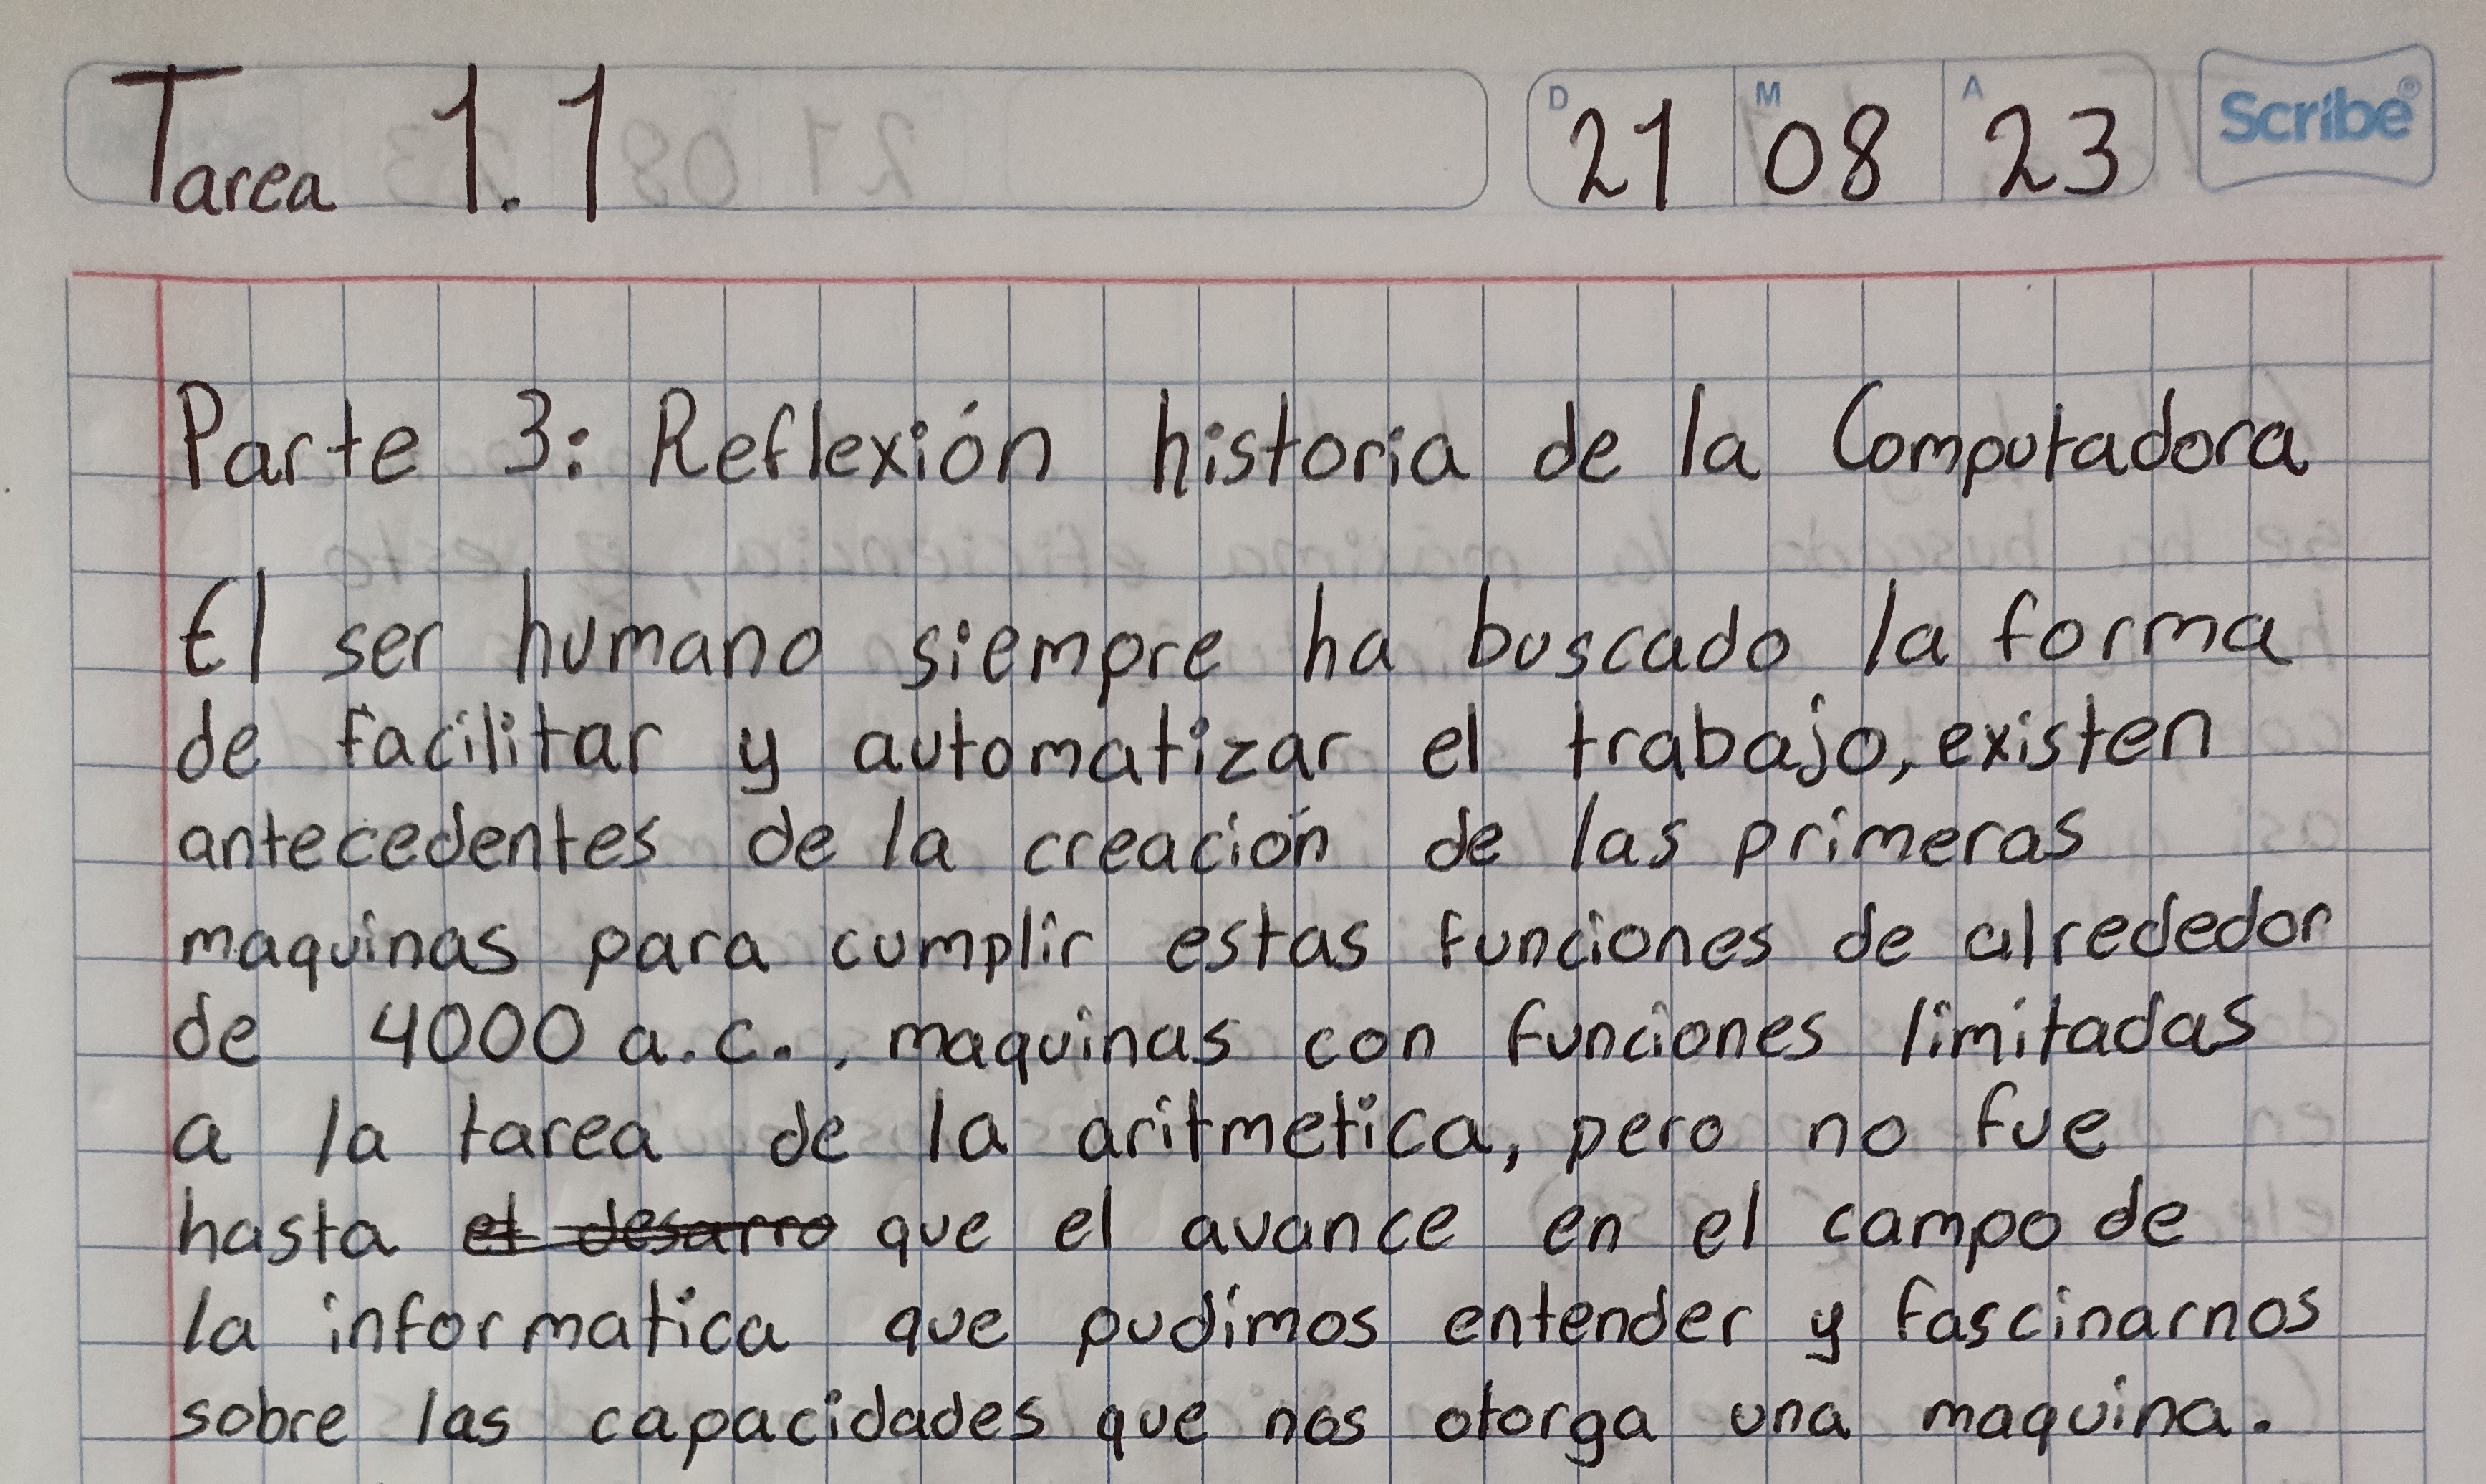 Tarea 1.1
D 21 M 08 A 23
Scribe®
Parte 3: Reflexión historia de la Computadora
El ser humano siempre ha buscado la forma
de facilitar y automatizar el trabajo, existen
antecedentes de la creación de las primeras
maquinas para cumplir estas funciones de alrededor
de 4000 a.c., maquinas con funciones limitadas
a la tarea de la aritmetica, pero no fue
hasta el desarro que el avance en el campo de
la informatica que pudimos entender y fascinarnos
sobre las capacidades que nos otorga una maquina.